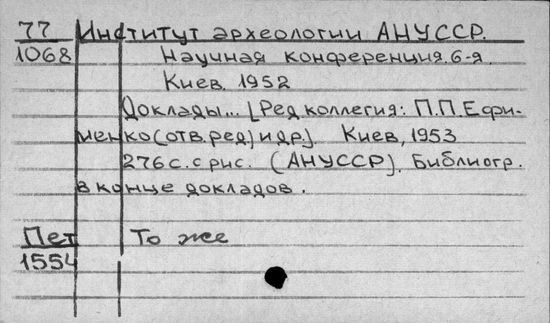 77 Институт археологии АНУССР.
1068 Научная конференция. 6-я.
Киев. 1952
Доклады... [Ред.коллегия: П.П.Ефи-
менко(отв.ред) и др]. Киев, 1953
276с. с рис. (АНУССР). Библиогр.
в конце докладов.
Пет То же
1554